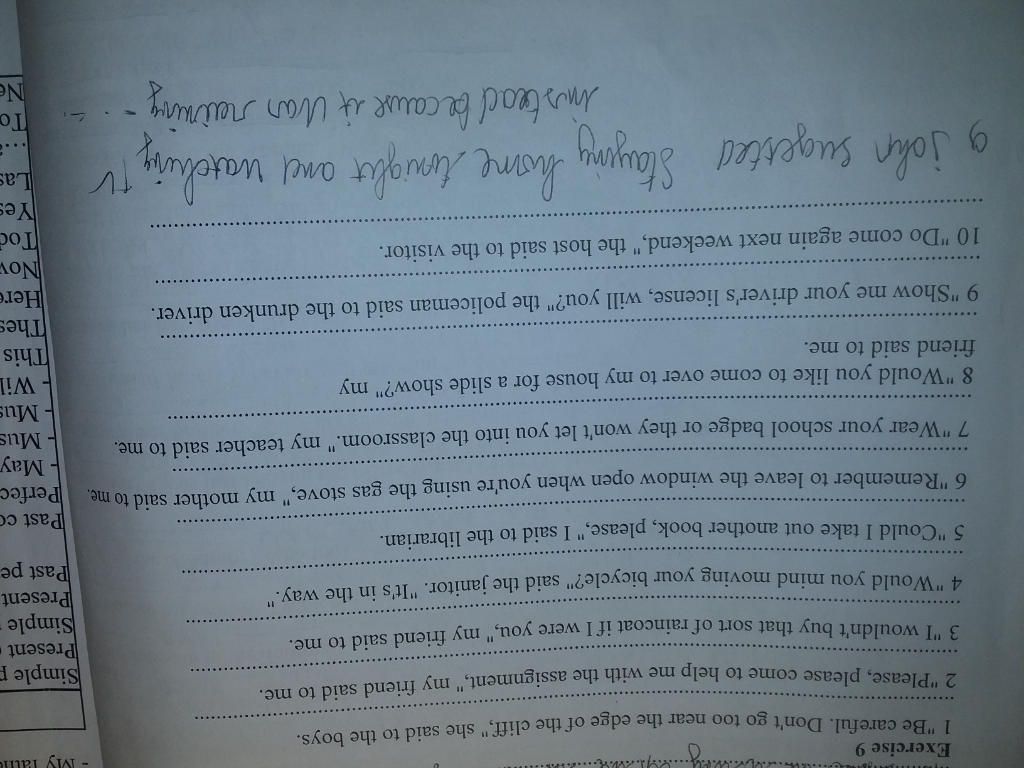 Exercise 9
1 "Be careful. Don't go too near the edge of the cliff," she said to the boys.
2 "Please, please come to help me with the assignment," my friend said to me.
3 "I wouldn't buy that sort of raincoat if I were you," my friend said to me.
4 "Would you mind moving your bicycle?" said the janitor. "It's in the way."
5 "Could I take out another book, please," I said to the librarian.
6 "Remember to leave the window open when you're using the gas stove," my mother said to me.
7 "Wear your school badge or they won't let you into the classroom." my teacher said to me.
8 "Would you like to come over to my house for a slide show?" my
friend said to me.
9 "Show me your driver's license, will you?" the policeman said to the drunken driver.
10 "Do come again next weekend," the host said to the visitor.
9 John sugested staying home tonight and watching TV
instead because it was raining
- My fath
Simple p
Present
Simple
Present
Past pe
Past co
Perfec
- May
- Mus
- Mus
- Wil
This
Thes
Here
Nov
Tod
Yes
Las
To
Ne